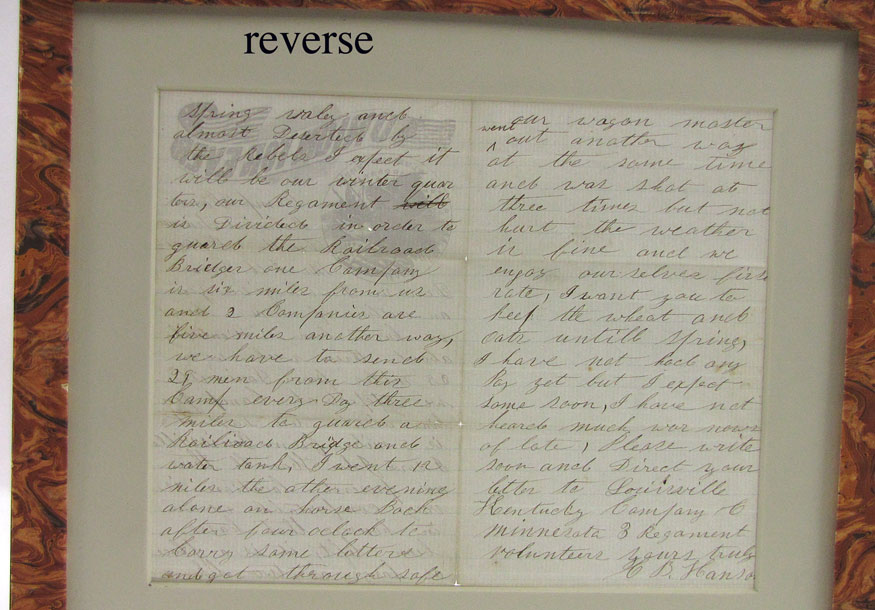 reverse
Spring valey and
almost Deserted by
the Rebels I expect it
will be our winter quar
ters, our Regament will
is Divided in order to
guard the Railroad
Bridges one Company
is six miles from us
and 2 Companies are
five miles another way,
we have to send
29 men from this
Camp every Day three
miles to guard a
Railroad Bridge and
water tank, I went 12
miles the other evening
alone on horse Back
after four oclock to
Carry some letters
and got through safe
our wagon master
went out another way
at the same time
and was shot at
three times but not
hurt the weather
is fine and we
enjoy ourselves first
rate, I want you to
keep the wheat and
oats untill spring,
I have not had any
Pay yet but I expect
some soon, I have not
heard much war news
of late, Please write
soon and Direct your
letter to Louisville
Kentucky Company C
Minnesota 3 Regament
volunteers yours truly
H B Hanson